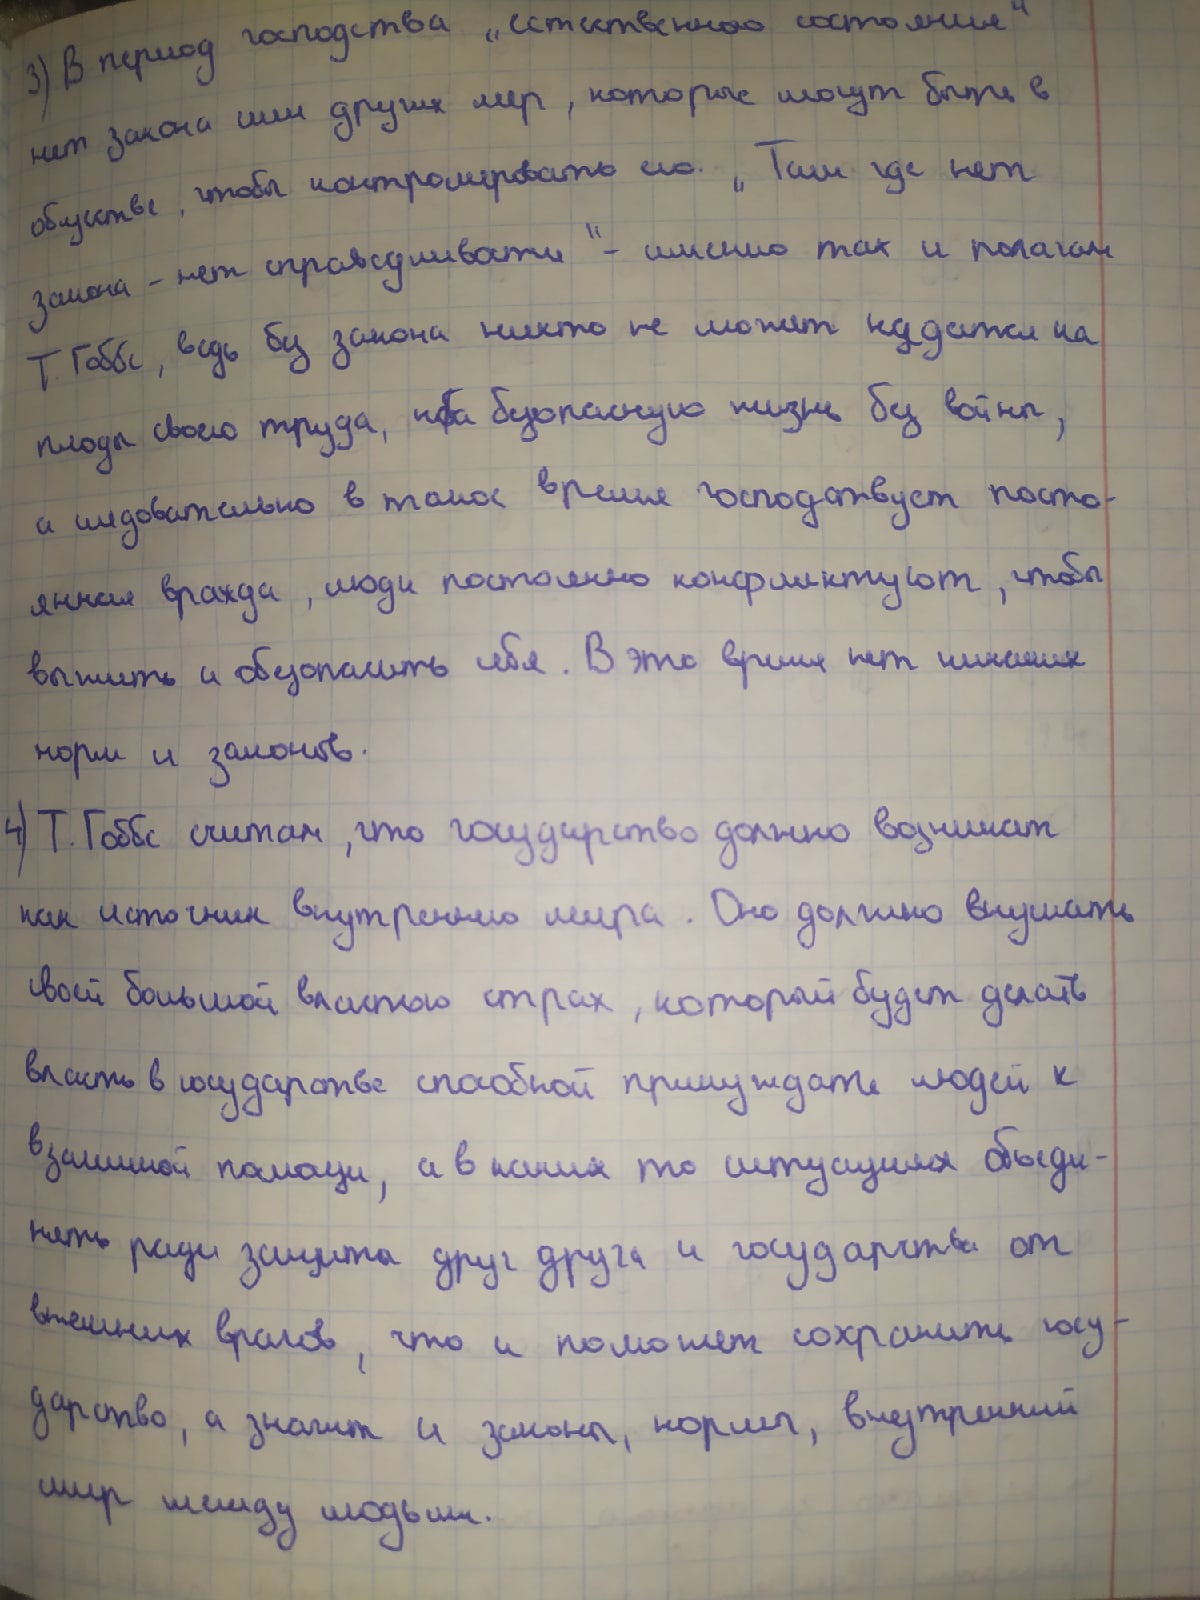 3) В период господства „естественного состояния"
нет закона или других мер, которые могут быть в
обществе, чтобы контролировать его. „Там где нет
закона - нет справедливости" - именно так и полагал
Т. Гоббс, ведь без закона никто не может надеятся на
плоды своего труда, на безопасную жизнь без войны,
а следовательно в такое время господствует посто-
янная вражда, люди постоянно конфликтуют, чтобы
выжить и обезопасить себя. В это время нет никаких
норм и законов.
4) Т. Гоббс считал, что государство должно возникать
как источник внутреннего мира. Оно должно внушать
своей большой властью страх, который будет делать
власть в государстве способной принуждать людей к
взаимной помощи, а в каких то ситуациях объеди-
нять ради защиты друг друга и государства от
внешних врагов, что и поможет сохранить госу-
дарство, а значит и законы, нормы, внутренний
мир между людьми.